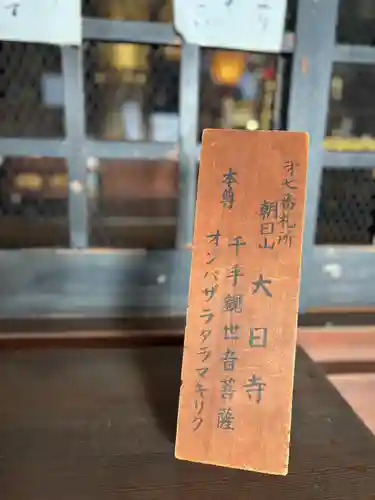 才七番札所
朝日山
大日寺
本尊
千手観世音菩薩
オンバザラタラマキリク